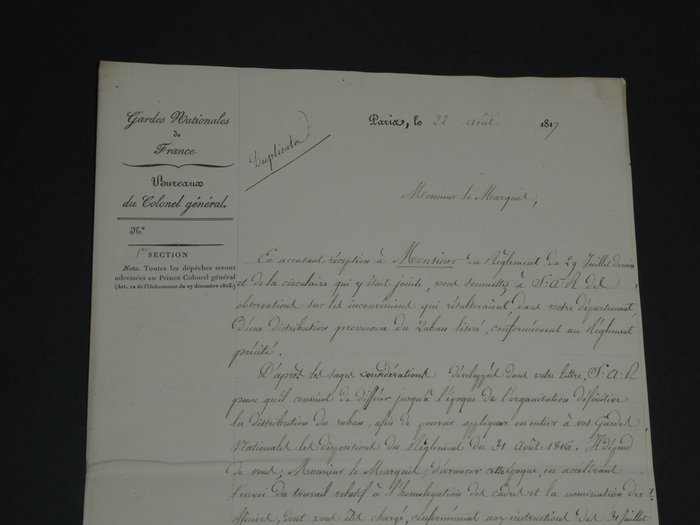 Gardes Nationales
de
France.
Bureaux
du Colonel général.
N°
1re SECTION
Nota. Toutes les dépêches seront
adressées au Prince Colonel général
(Art. 12 de l'Ordonnance du 27 décembre 1815.)
Duplicata
Paris, le 22 Août 1817
Monsieur le Marquis,
En accusant réception à Monsieur du Règlement du 29 Juillet dernier
et de la circulaire qui y était jointe, vous soumettez à S. A. R des
observations sur les inconvéniens qui résulteraient, dans votre département,
d'une distribution provisoire du Ruban liseré, conformément au Règlement
précité.
D'après les sages considérations développées dans votre lettre, S. A. R
pense qu'il convient de différer jusqu'à l'époque de l'organisation définitive
la distribution du ruban, afin de pouvoir appliquer en entier à vos Gardes
Nationales les dispositions du Règlement du 31 Août 1816. Il dépend
de vous, Monsieur le Marquis, d'avancer cette époque, en accélérant
l'envoi du travail relatif à l'homologation des cadres et la nomination des
officiers, dont vous êtes chargé, conformément aux instructions des 31 Juillet